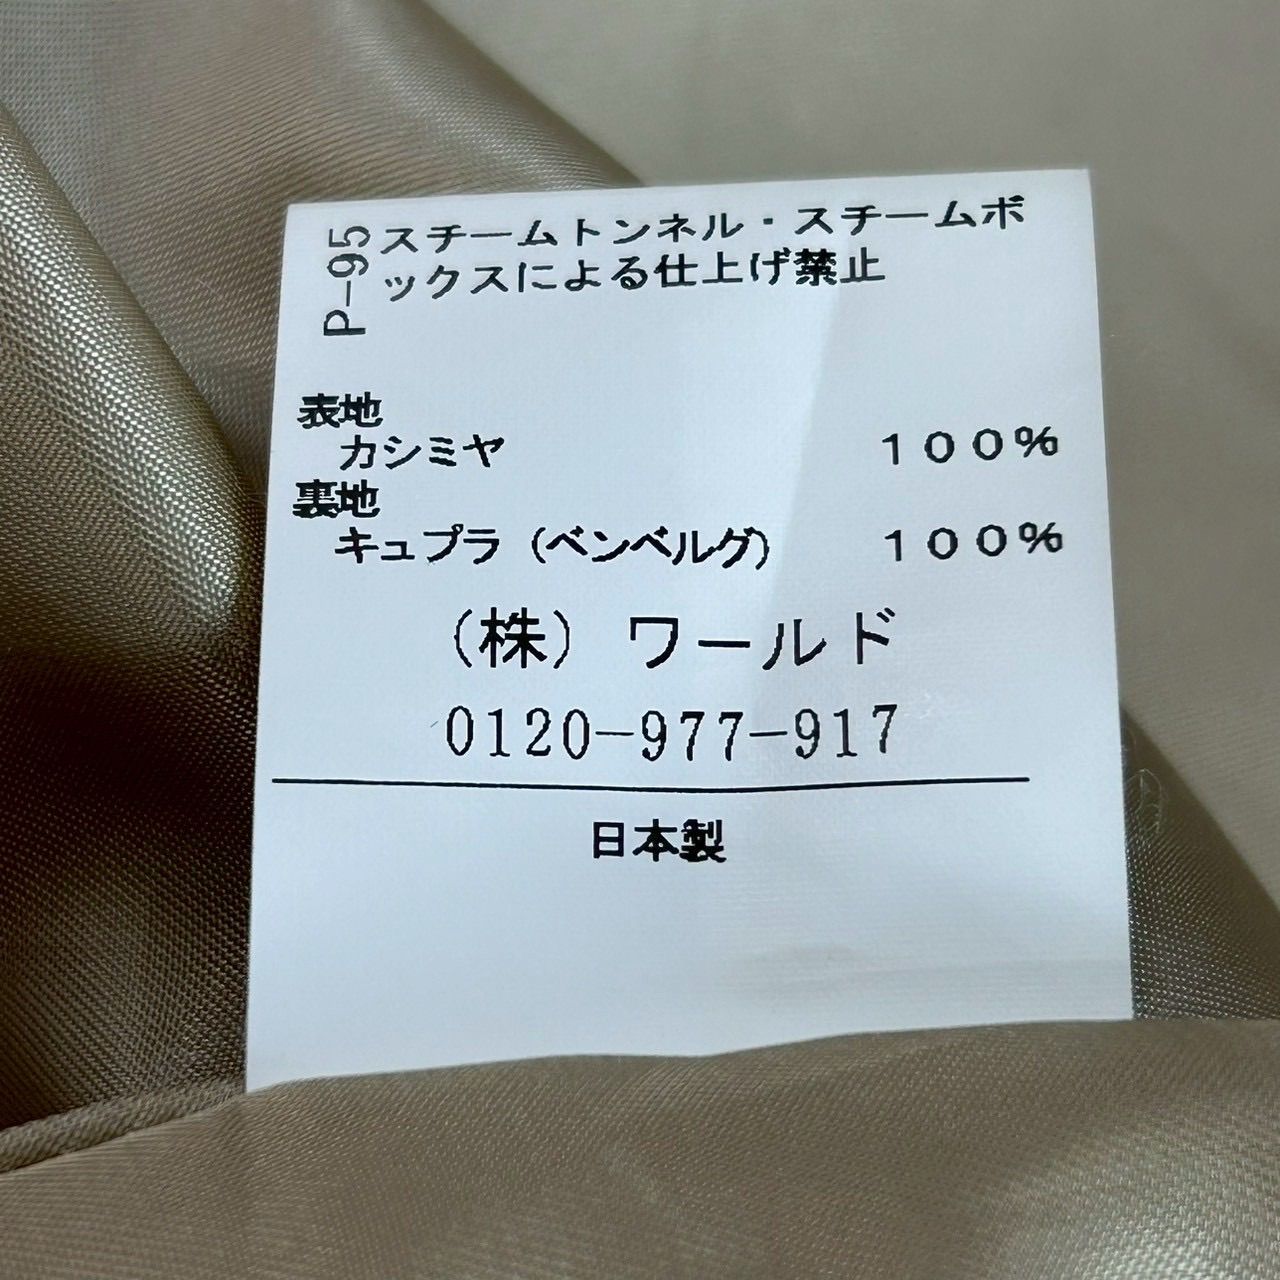 P-95
スチームトンネル・スチームボ
ックスによる仕上げ禁止
表地
カシミヤ 100%
裏地
キュプラ (ベンベルグ) 100%
(株) ワールド
0120-977-917
日本製